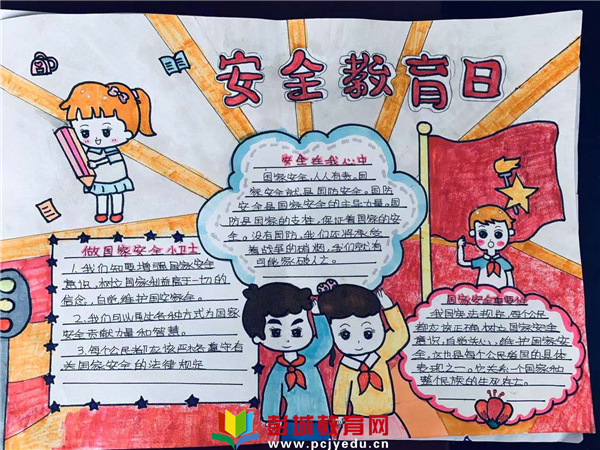 安全教育日
安全在我心中
国家安全，人人有责。国
家安全就是国防安全。国防
安全是国家安全的主导力量。国
防是国家的支柱，保证着国家的安
全。没有国防，我们还将承受
着战争的硝烟，我们就有
可能家破人亡。
做国家安全小卫士
1.我们知要增强国家安全
意识，树立国家利益高于一切的
信念，自觉维护国安家全。
2.我们可以用各种方式为国家
安全贡献力量和智慧。
3.每个公民者应该严格遵守有
关国家安全的法律规定
国家安全重要性
我国宪法规定，每个公民
都应该正确树立国家安全
意识，自觉关心，维护国家安
全，这也是每个公民爱国的具体
表现之一。也关系一个国家和
整个民族的生死存亡。
彭城教育网
www.pcjyedu.cn